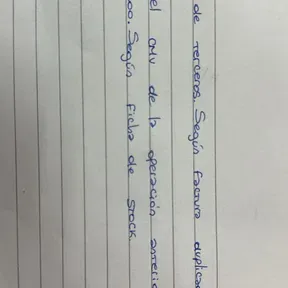 de terceros. Según factura duplica
el CMV de la operación anterio
00. Según ficha de stock.